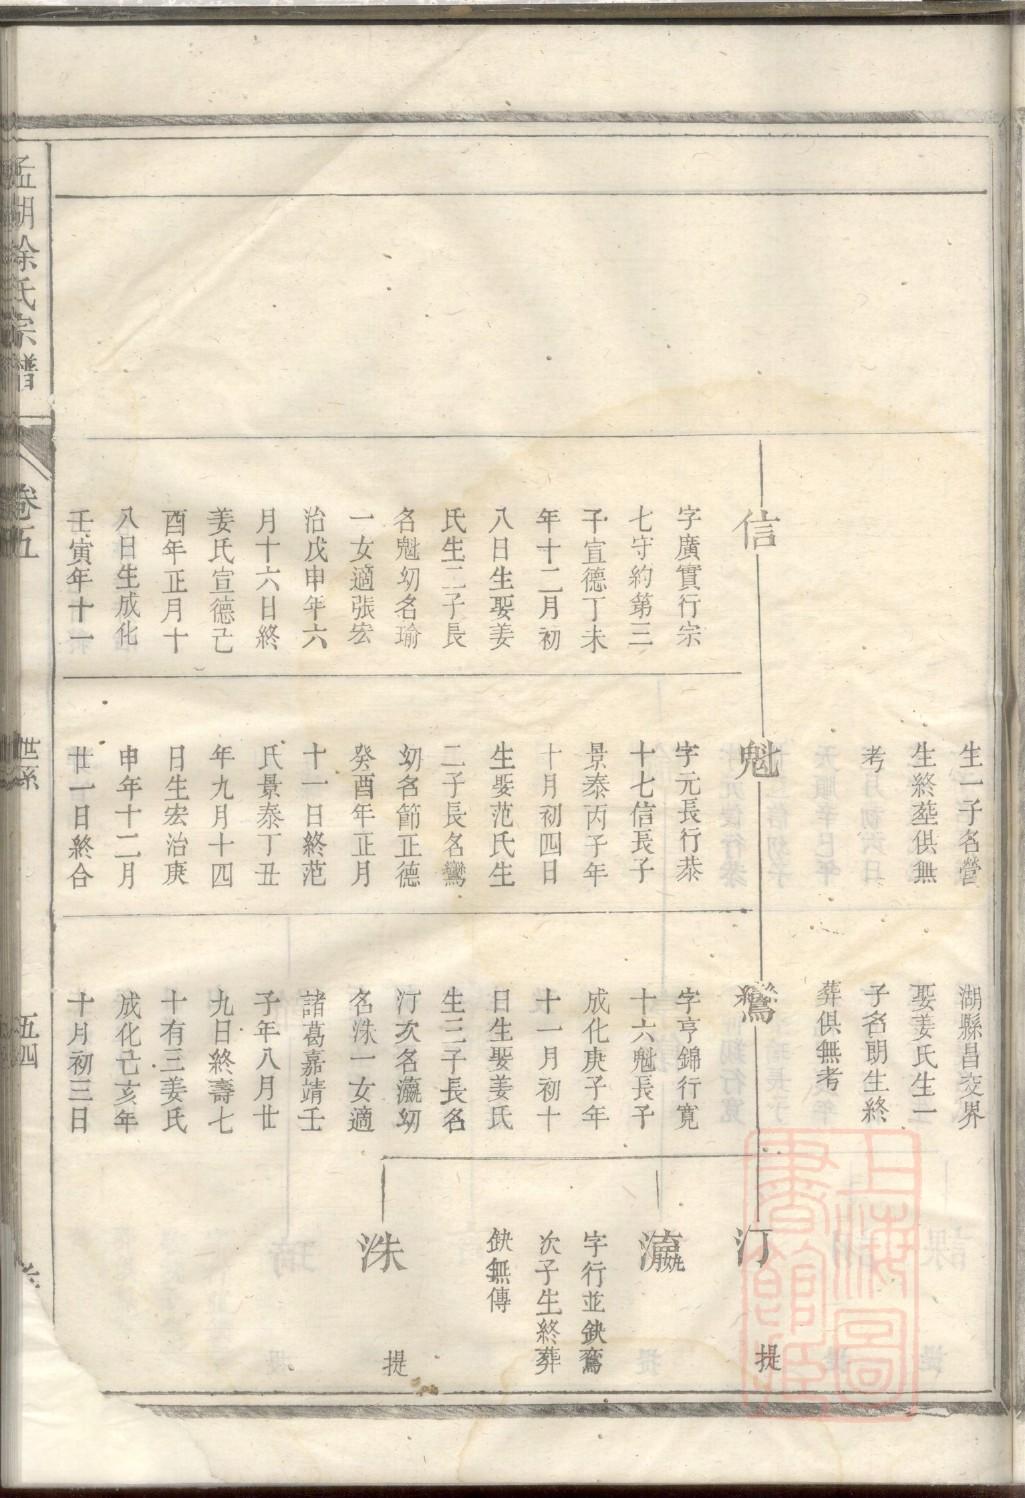 信
字廣實行宗
七守約第三
子宣德丁未
年十二月初
八日生娶姜
氏生二子長
名魁幼名瑜
一女適張宏
治戊申年六
月十六日終
姜氏宣德己
酉年正月十
八日生成化
壬寅年十一
生一子名營
生終塟俱無
考
魁
字元長行恭
十七信長子
景泰丙子年
十月初四日
生娶范氏生
二子長名鸞
幼名節正德
癸酉年正月
十一日終范
氏景泰丁丑
年九月十四
日生宏治庚
申年十二月
廿一日終合
湖縣昌交界
娶姜氏生一
子名朙生終
葬俱無考
鸞
字亨錦行寛
十六魁長子
成化庚子年
十一月初十
日生娶姜氏
生三子長名
汀次名瀛幼
名洙一女適
諸葛嘉靖壬
子年八月廿
九日終壽七
十有三姜氏
成化己亥年
十月初三日
汀
提
瀛
字行並缺鸞
次子生終葬
缺無傳
洙
提
湖徐氏宗譜
卷五
世系
五四
上海圖書館藏